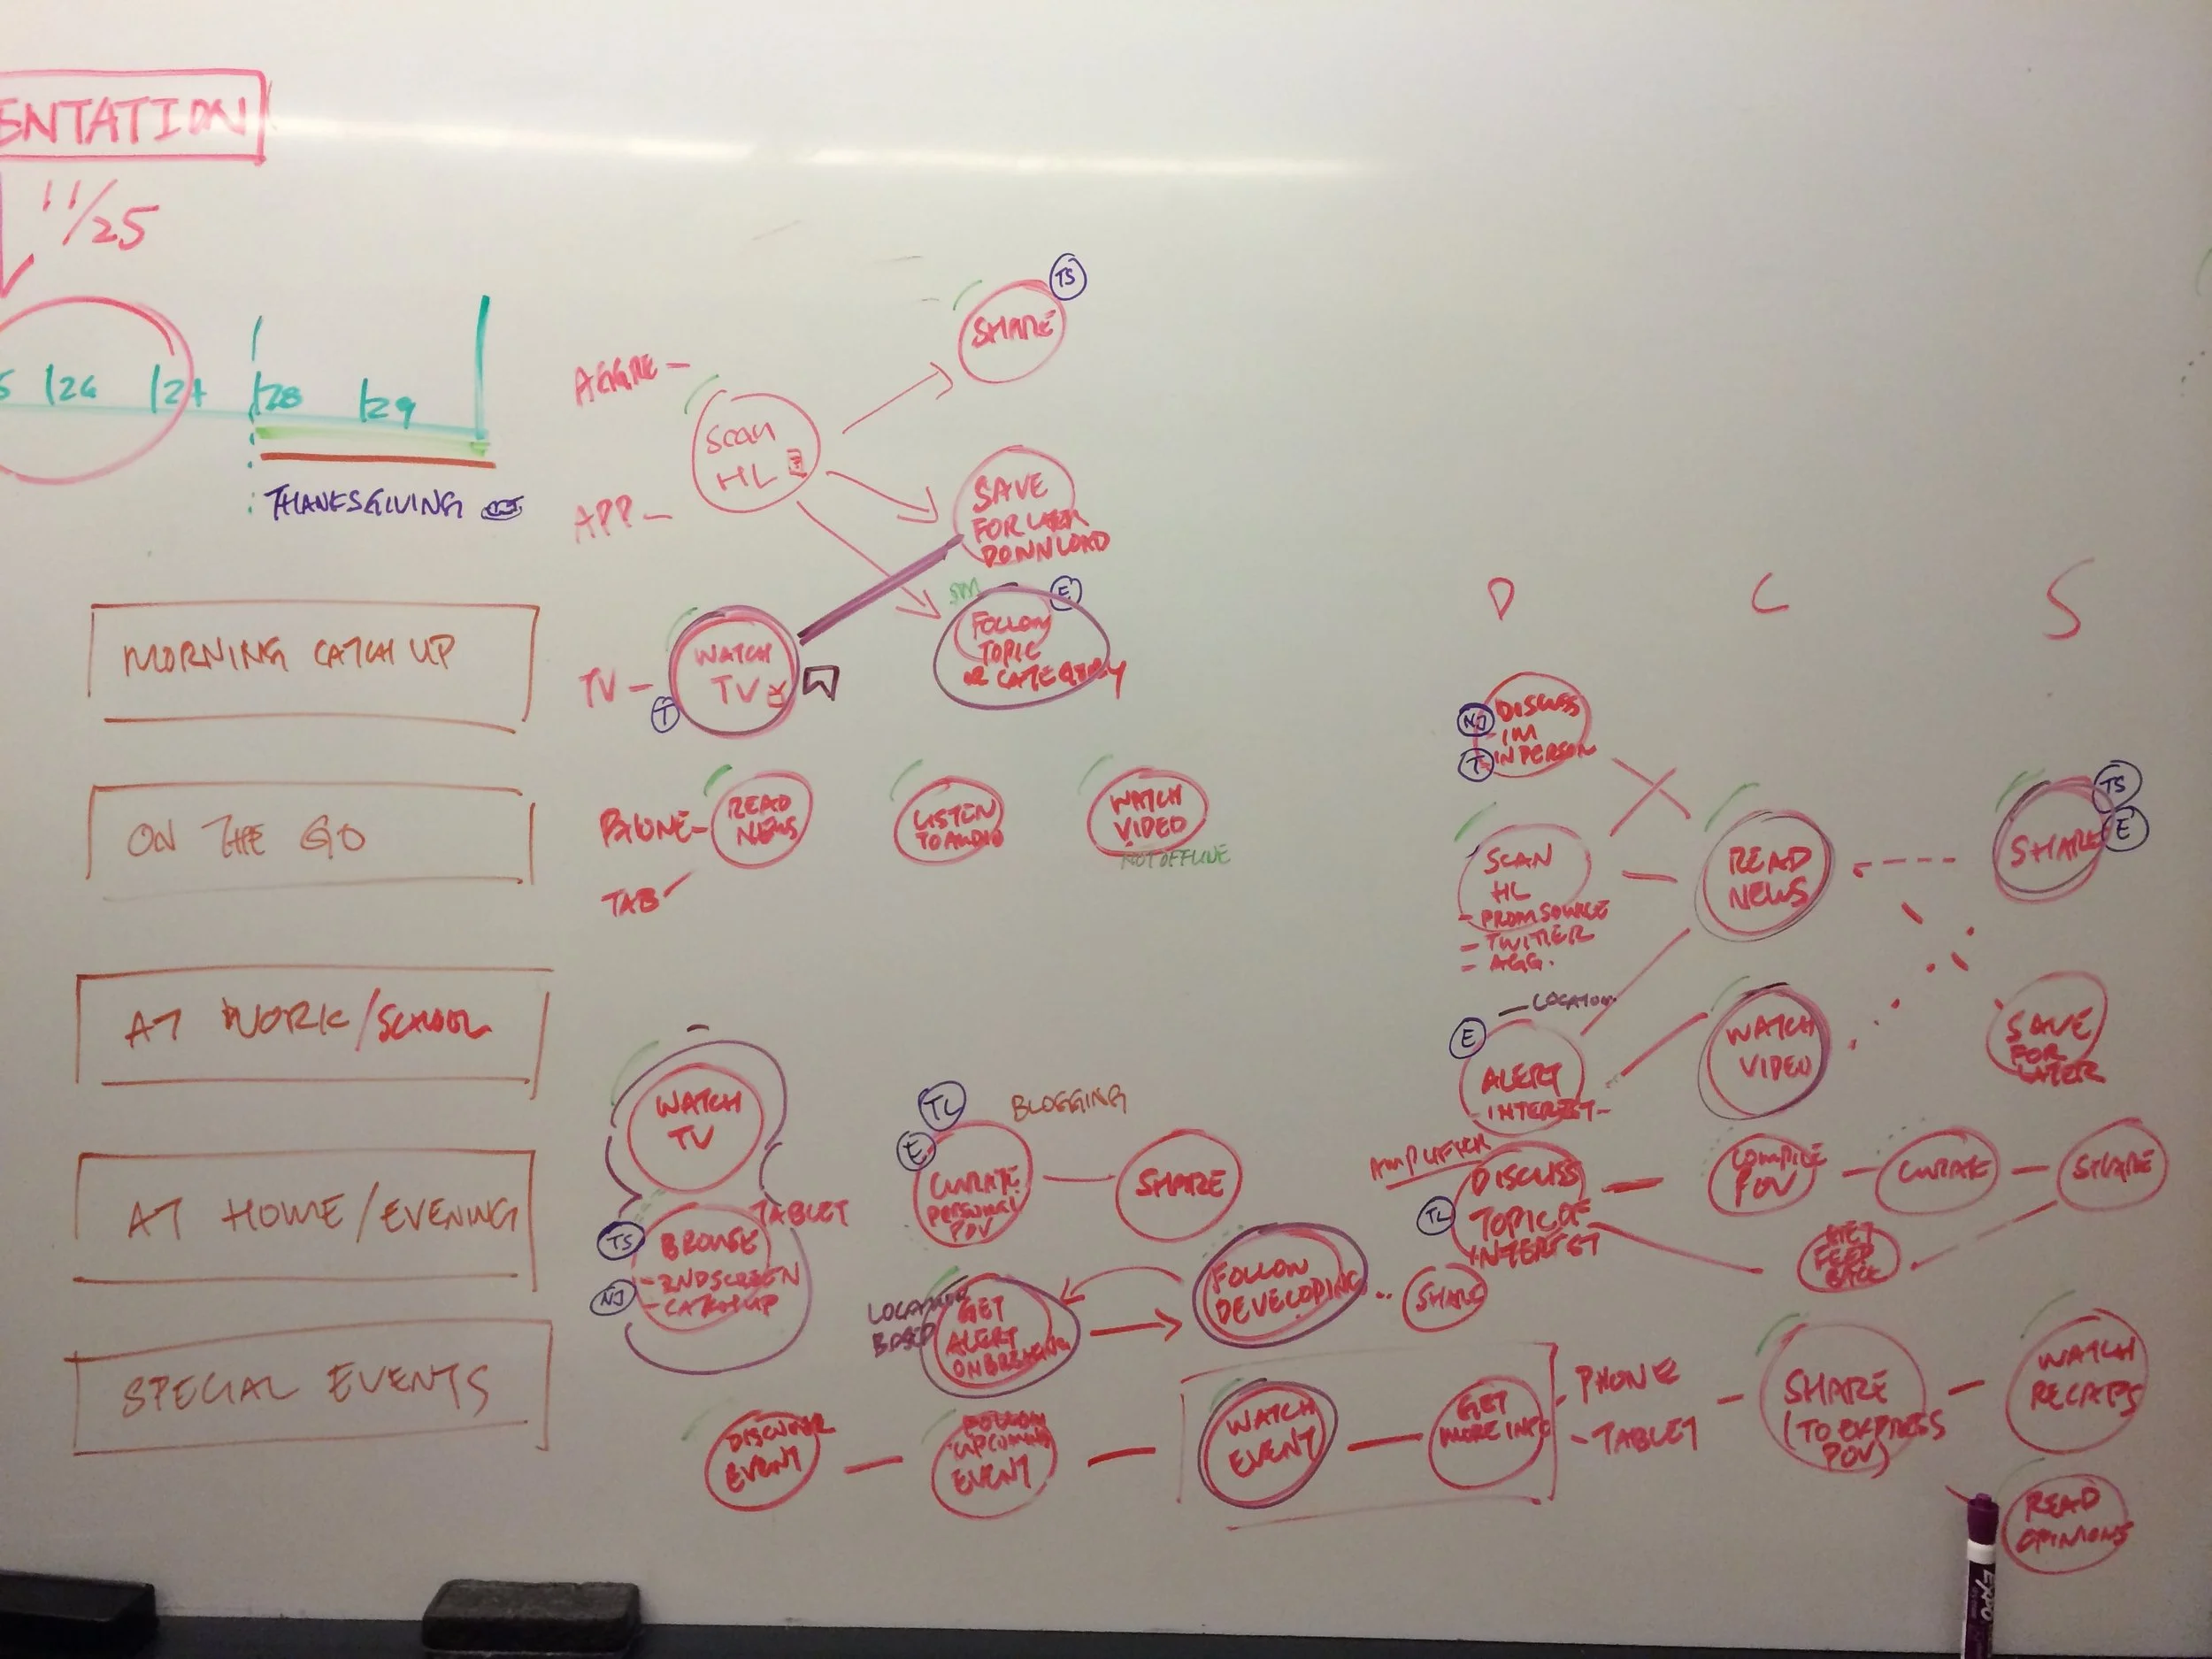 ENTATION
11/25
/26
/28
/29
THANKSGIVING
MORNING CATCH UP
ON THE GO
AT WORK/SCHOOL
AT HOME/EVENING
SPECIAL EVENTS
AGGRE –
APP –
TV –
SCAN
HL
SHARE
TS
SAVE
FOR LATER
DOWNLOAD
E
FOLLOW
TOPIC
OR CATEGORY
WATCH
TV
T
PHONE –
TAB
READ
NEWS
LISTEN
TO AUDIO
WATCH
VIDEO
NOT OFFLINE
D C S
NJ
DISCUSS
- IM
T
IN PERSON
SCAN
HL
- FROM SOURCE
- TWITTER
- AGG.
READ
NEWS
SHARE
TS
E
– LOCATION
E
ALERT
- INTEREST -
WATCH
VIDEO
SAVE
FOR
LATER
WATCH
TV
TABLET
TS
BROWSE
- 2ND SCREEN
NJ
- CATCH UP
TL
E
BLOGGING
CURATE
PERSONAL
POV
SHARE
AMPLIFIER
TL
DISCUSS
TOPIC OF
INTEREST
COMPILE
POV
CURATE
SHARE
GET
FEED
BACK
LOCATION
BASED
GET
ALERT
ON BREAKING
FOLLOW
DEVELOPING
SHARE
DISCOVER
EVENT
FOLLOW
UPCOMING
EVENT
WATCH
EVENT
GET
MORE INFO
- PHONE
- TABLET
SHARE
(TO EXPRESS
POV)
WATCH
RECAPS
READ
OPINIONS
EXPO